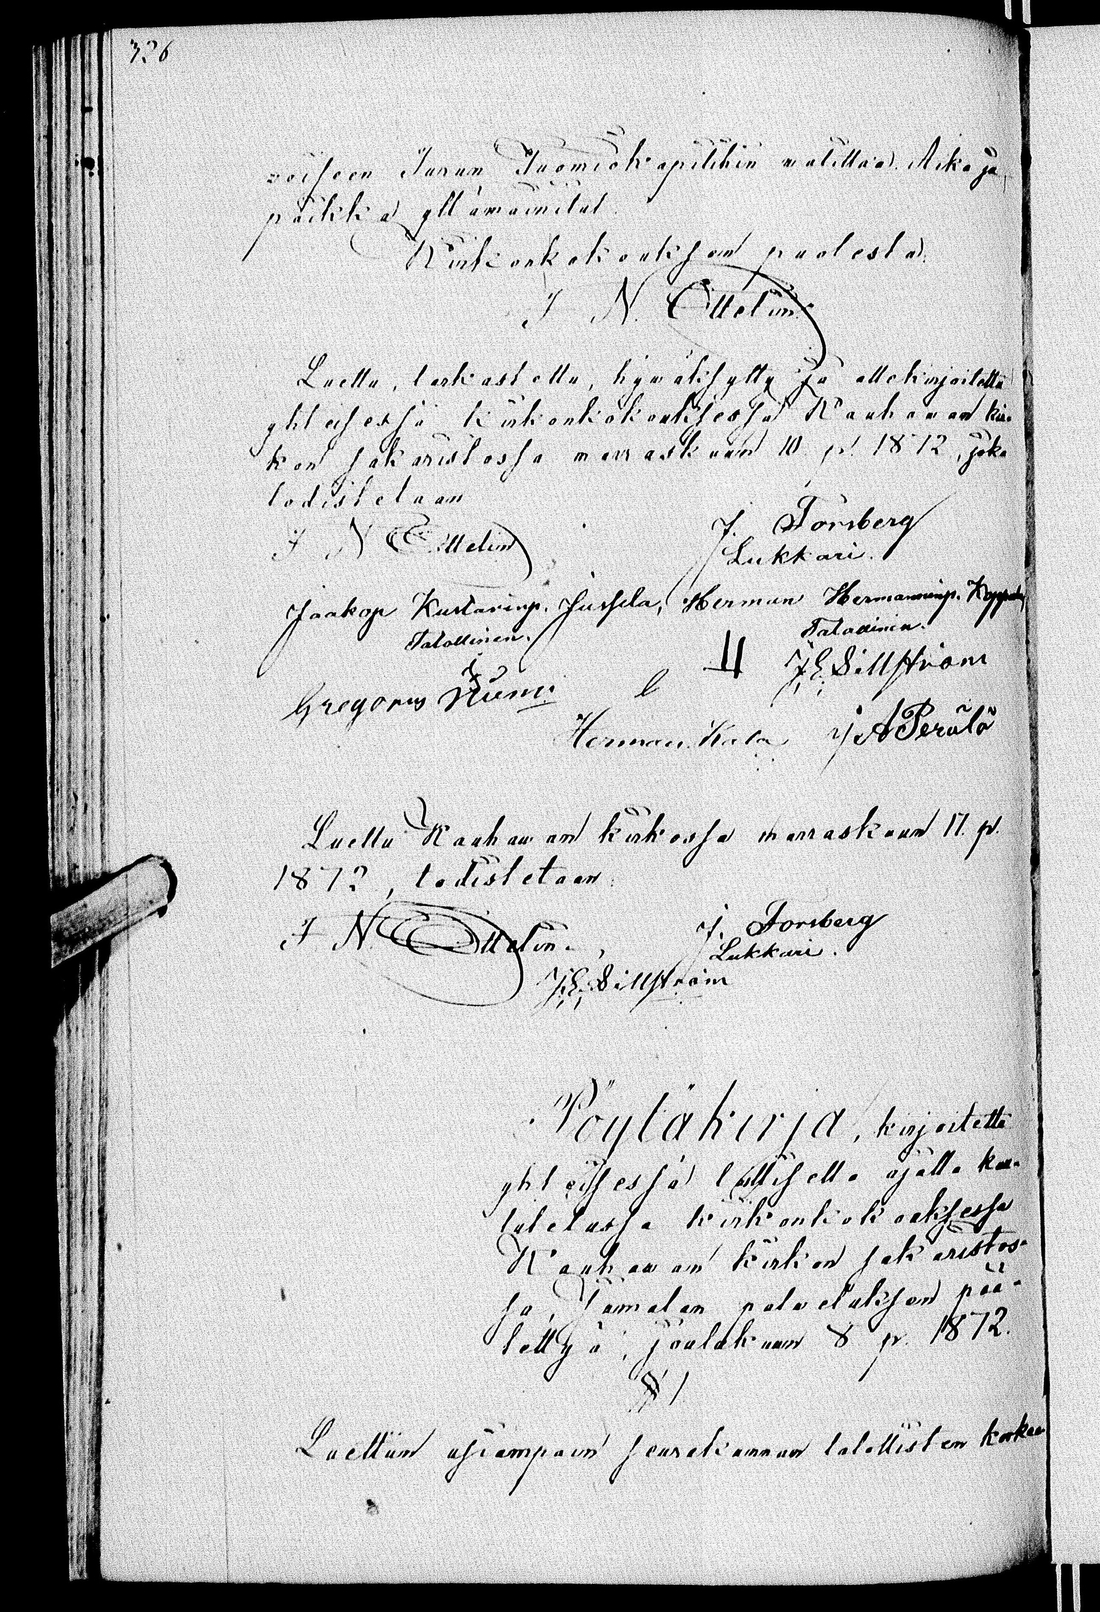 326
voiseen Turun Tuomiokapitilin valittaa. Aika ja
paikka yllämainitut.
Kirkonkokouksen puolesta
I N. Ottelin.
Luettu, tarkastettu, hywäksytty ja allekirjoitettu
yhteisessä kirkonkokouksessa Kauhawan kir-
kon sakaristossa marraskuun 10 p. 1872, joka
todistetaan
I N Ottelin
J. Forsberg
Lukkari.
Jaakop Kustavinp. Jussila, Herman Hermanninp. Koppala
Talollinen. Talollinen.
J E Sillström
Gregorius Niemi
Herman Kala J A Perälä
Luettu Kauhawan kirkossa marraskuun 17. p.
1872, todistetaan:
I N. Ottelin.
J. Forsberg
Lukkari.
J E Sillström
Pöytäkirja, kirjoitettu
yhteisessä laillisella ajalla kuu-
lutetussa kirkonkokouksessa
Kauhawan kirkon sakaristos-
sa, Jumalan palveluksen pää-
tettyä, joulukuun 8 p. 1872.
§ 1
Luettiin useampain seurakunnan talollisten korkea